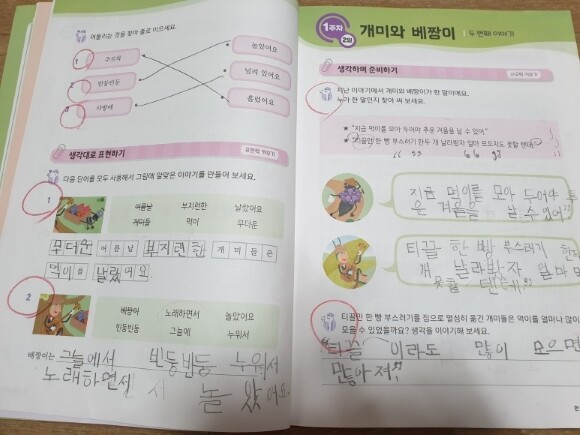 어울리는 것을 찾아 줄로 이으세요.
1
2
3
주르륵
빈둥빈둥
사방에
놀았어요
널려 있어요
흘렀어요
생각대로 표현하기
표현력 키우기
다음 단어를 모두 사용해서 그림에 알맞은 이야기를 만들어 보세요.
1
여름날 부지런한 날랐어요
개미들 먹이 무더운
무더운 여름날 부지런한 개미들은
먹이를 날랐어요
2
베짱이 노래하면서 놀았어요
빈둥빈둥 그늘에 누워서
베짱이는 그늘에서 빈둥빈둥 누워서
노래하면서 놀았어요
1주차
2일
개미와 베짱이
두 번째 이야기
생각하며 준비하기
사고력 키우기
지난 이야기에서 개미와 베짱이가 한 말이에요.
누가 한 말인지 찾아 써 보세요.
"지금 먹이를 모아 두어야 추운 겨울을 날 수 있어."
"티끌만 한 빵 부스러기 한두 개 날라봤자 얼마 모으지도 못할 텐데."
지금 먹이를 모아 두어야 추
운 겨울을 날 수 있어
티끌 한 빵 부스러기 한두
개 날라봤자 얼마
못할 텐데
티끌만 한 빵 부스러기를 집으로 열심히 옮긴 개미들은 먹이를 얼마나 많이
모을 수 있었을까요? 생각을 이야기해 보세요.
"티끌 이라도 많이 모으면
많아져"